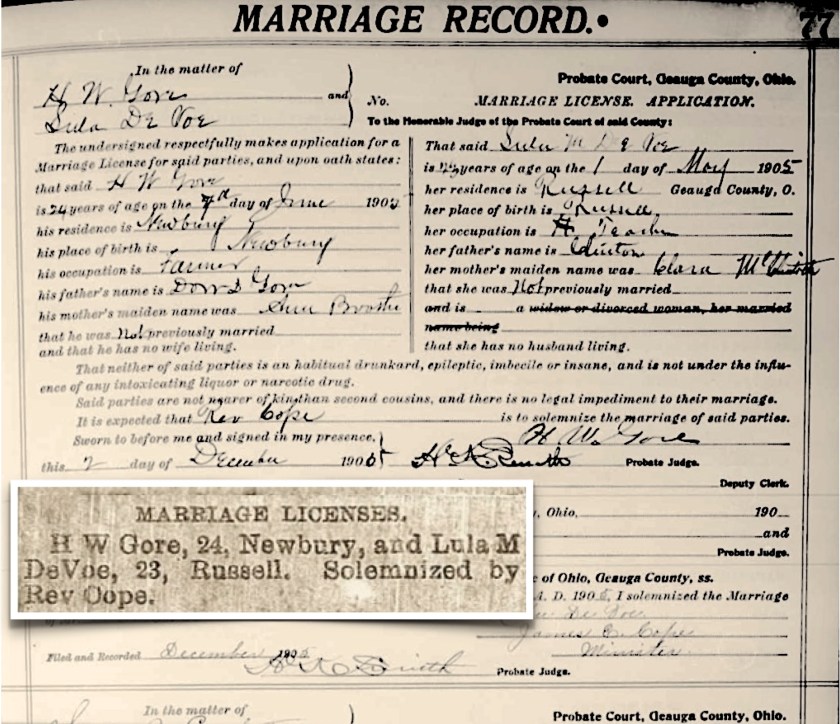 MARRIAGE RECORD.
77
In the matter of
H W Gore and
Lula De Voe
The undersigned respectfully makes application for a
Marriage License for said parties, and upon oath states:
that said H W Gore
is 24 years of age on the day of June 190
his residence is Newbury
his place of birth is Newbury
his occupation is Farmer
his father's name is Gore
his mother's maiden name was
that he was Not previously married
and that he has no wife living.
Probate Court, Geauga County, Ohio.
No. MARRIAGE LICENSE. APPLICATION.
To the Honorable Judge of the Probate Court of said County:
That said Lula M De Voe
is years of age on the 1 day of May 1905
her residence is Russell Geauga County, O.
her place of birth is Russell
her occupation is Teacher
her father's name is Clinton
her mother's maiden name was Clara
that she was Not previously married
and is a widow or divorced woman, her married
name being
that she has no husband living.
That neither of said parties is an habitual drunkard, epileptic, imbecile or insane, and is not under the influ-
ence of any intoxicating liquor or narcotic drug.
Said parties are not nearer of kin than second cousins, and there is no legal impediment to their marriage.
It is expected that Rev Cope is to solemnize the marriage of said parties.
Sworn to before me and signed in my presence, H W Gore
this 7 day of December 1905 Probate Judge.
Deputy Clerk.
MARRIAGE LICENSES.
H W Gore, 24, Newbury, and Lula M
DeVoe, 23, Russell. Solemnized by
Rev Cope.
, Ohio, 190
and
Probate Judge.
e of Ohio, Geauga County, ss.
A. D. 1905, I solemnized the Marriage
De Voe
James E. Cope
Minister
Filed and Recorded December 1905
Smith Probate Judge.
In the matter of
Probate Court, Geauga County, Ohio.